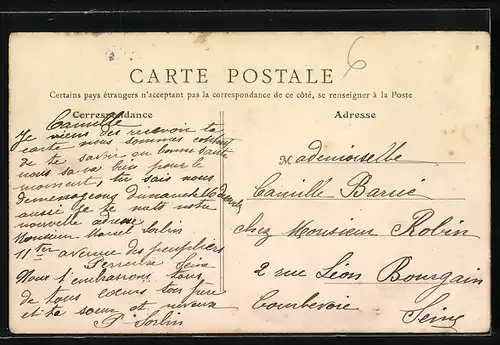 6
CARTE POSTALE
Certains pays étrangers n'acceptant pas la correspondance de ce côté, se renseigner à la Poste
Correspondance
Camille
Je viens des recevoir ta
carte nous sommes content
de te savoir en bonne santé
nous sa va bien pour le
moment, tu sais nous
demenageons dimanche 16
aussi je te mets notre
nouvelle adresse
Monsieur Marcel Sorlin
11 ter avenue des peupliers
Seine
Nous t'embrassons tous
de tous cœurs ton frere
et ta sœur et neveux
Sorlin
Adresse
Mademoiselle
Camille Barué
chez Monsieur Robin
2 rue Léon Bourgain
Courbevoie
Seine